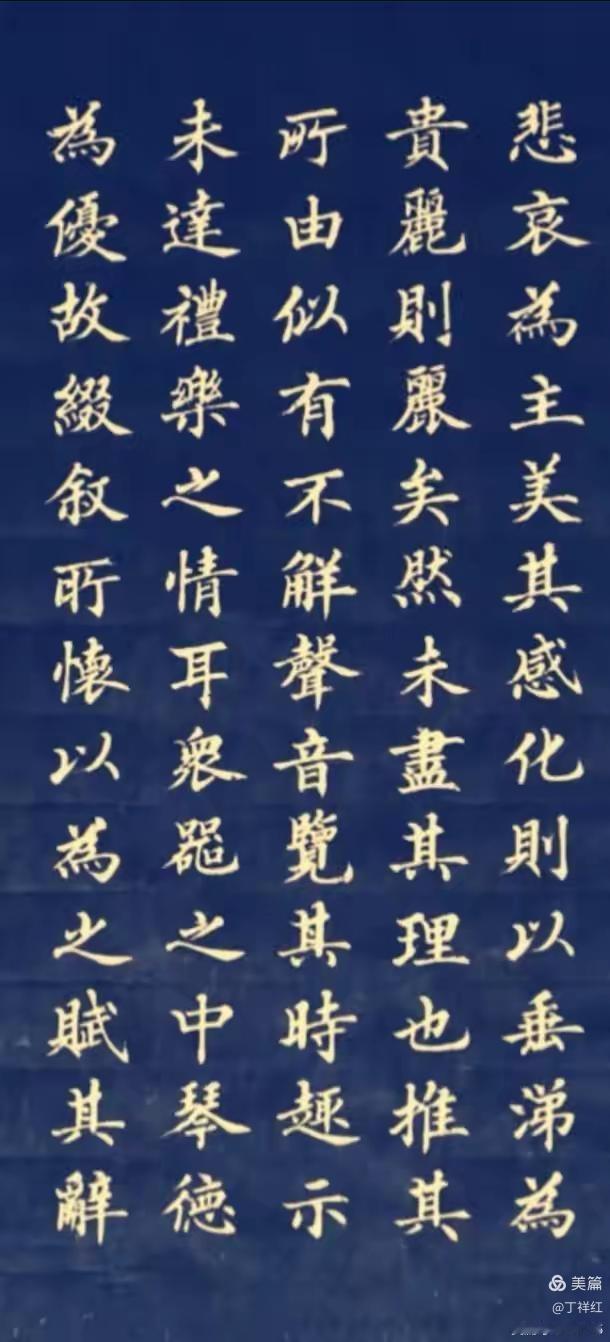 悲哀為主美其感化則以垂涕為
貴麗則麗矣然未盡其理也推其
所由似有不解聲音覽其時趣示
未達禮樂之情耳衆器之中琴德
為優故綴叙所懷以為之賦其辭
美篇
@丁祥红